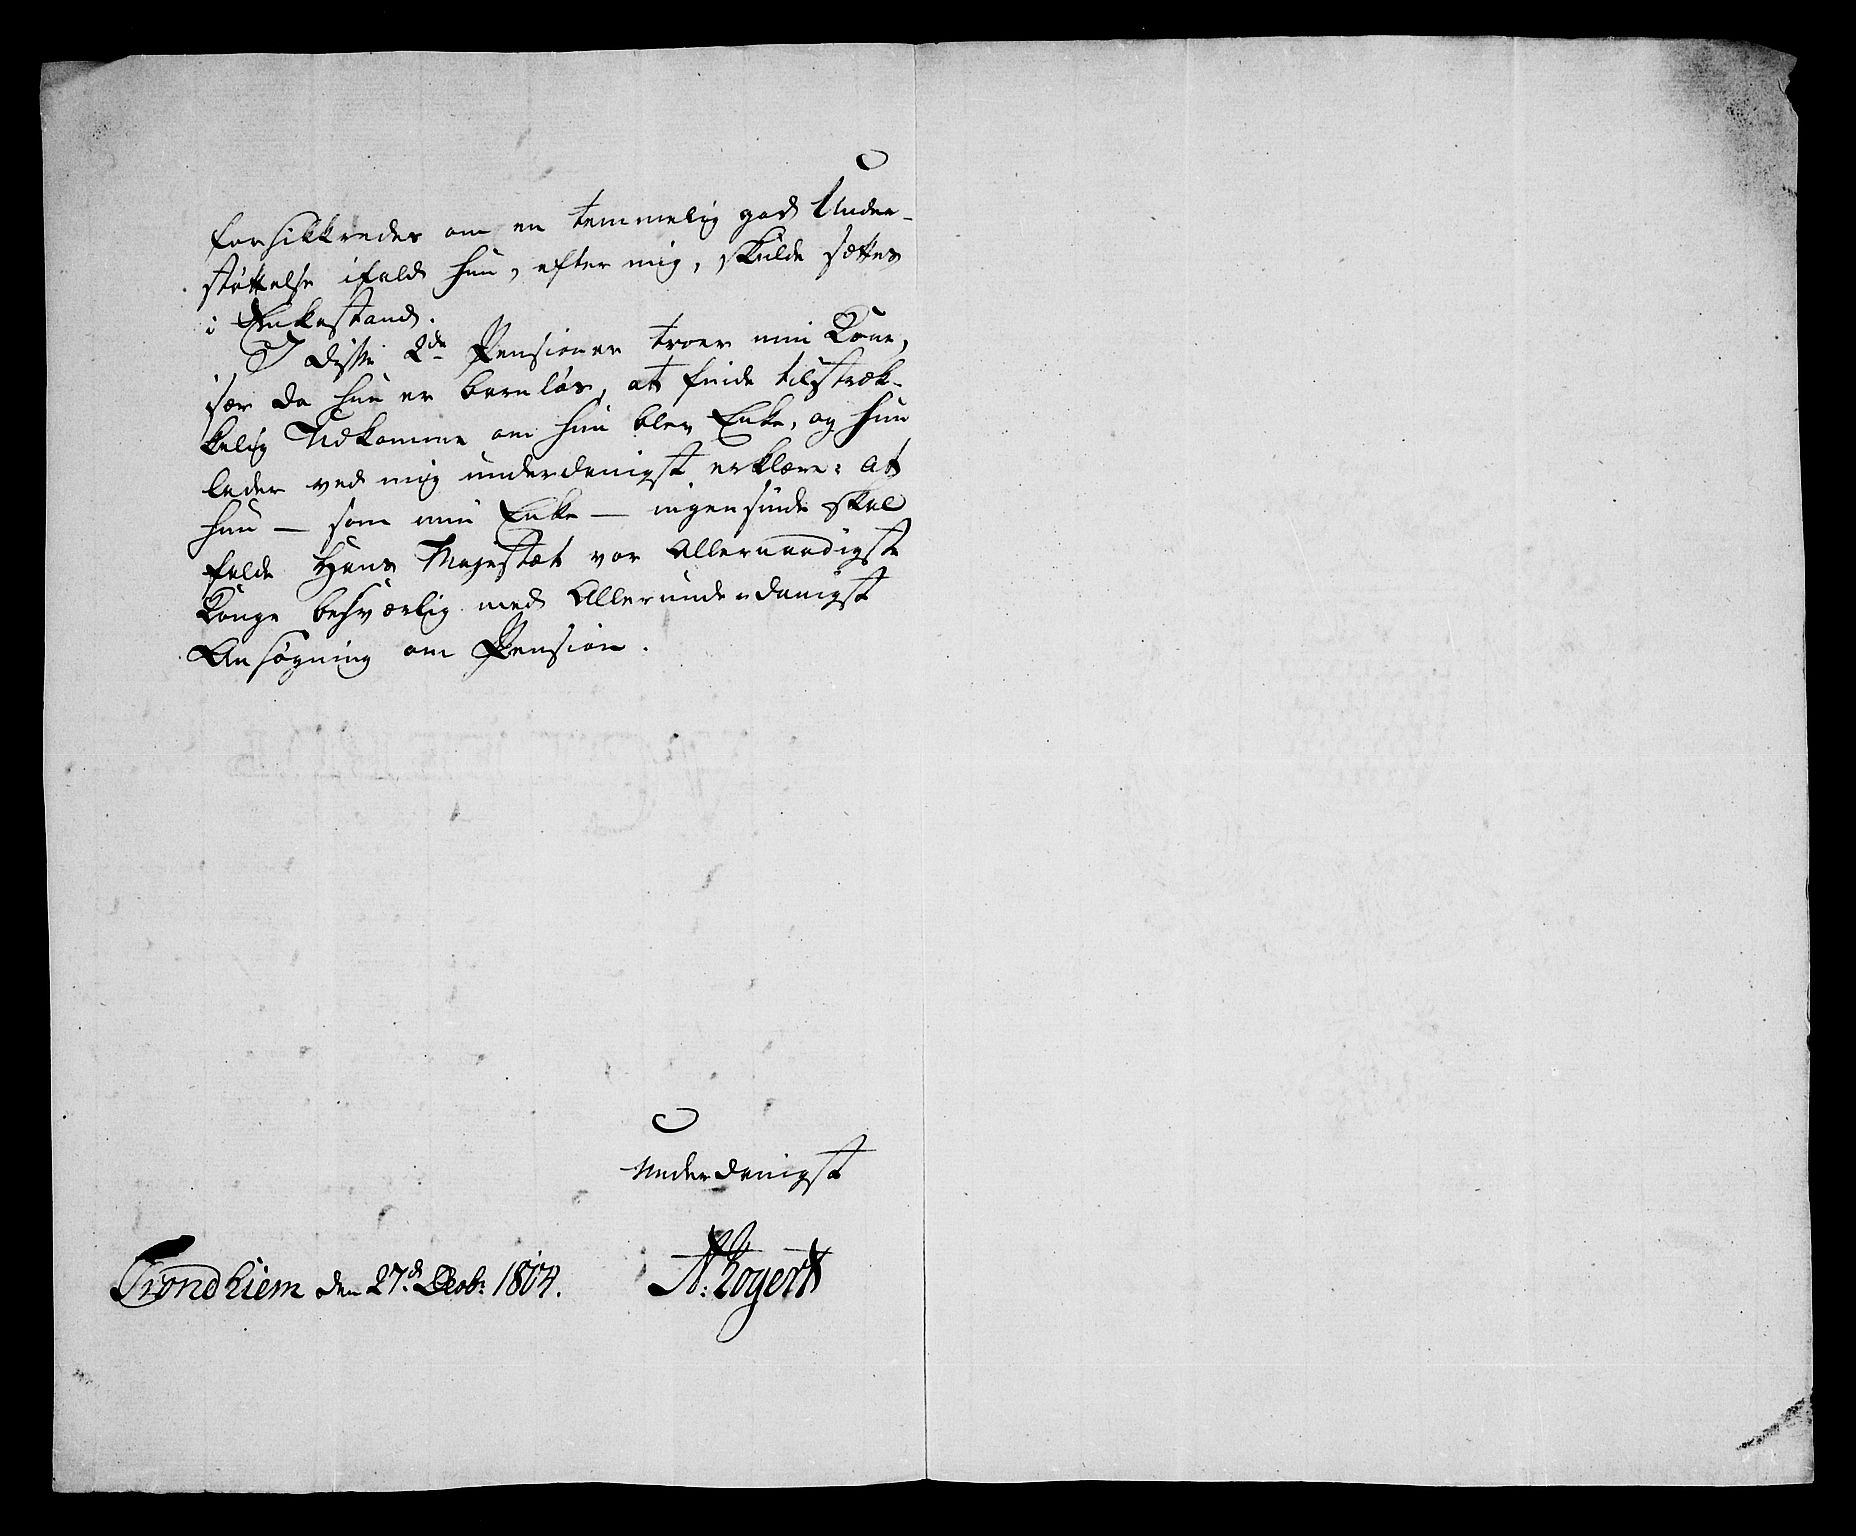 forsikkredes om en temmelig god Under-
støttelse ifald hun, efter mig, skulde sættes
i Enkestand.
I disse 2de Pensioner troer min Kone,
især da hun er barnløs, at finde tilstræk-
kelig Udkomme om hun blev Enke, og hun
lader ved mig underdanigst erklære: at
hun — som min Enke — ingensinde skal
falde Hans Majestæt vor Allernaadigste
Konge besværlig med Allerunderdanigst
Ansøgning om Pension.
Underdanigst
Trondhiem den 27d. 1804.
A: Rogert